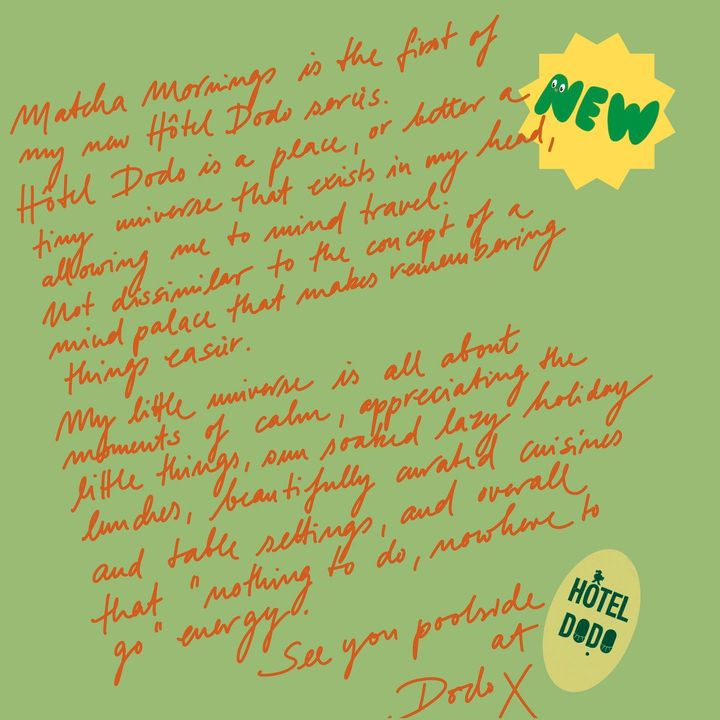 Matcha Mornings is the first of
my new Hôtel Dodo series.
Hôtel Dodo is a place, or better a
tiny universe that exists in my head,
allowing me to mind travel.
Not dissimilar to the concept of a
mind palace that makes remembering
things easier.
My little universe is all about
moments of calm, appreciating the
little things, sun soaked lazy holiday
lunches, beautifully curated cuisines
and table settings, and overall
that "nothing to do, nowhere to
go" energy.
See you poolside
at
Dodo X
NEW
HÔTEL
DODO